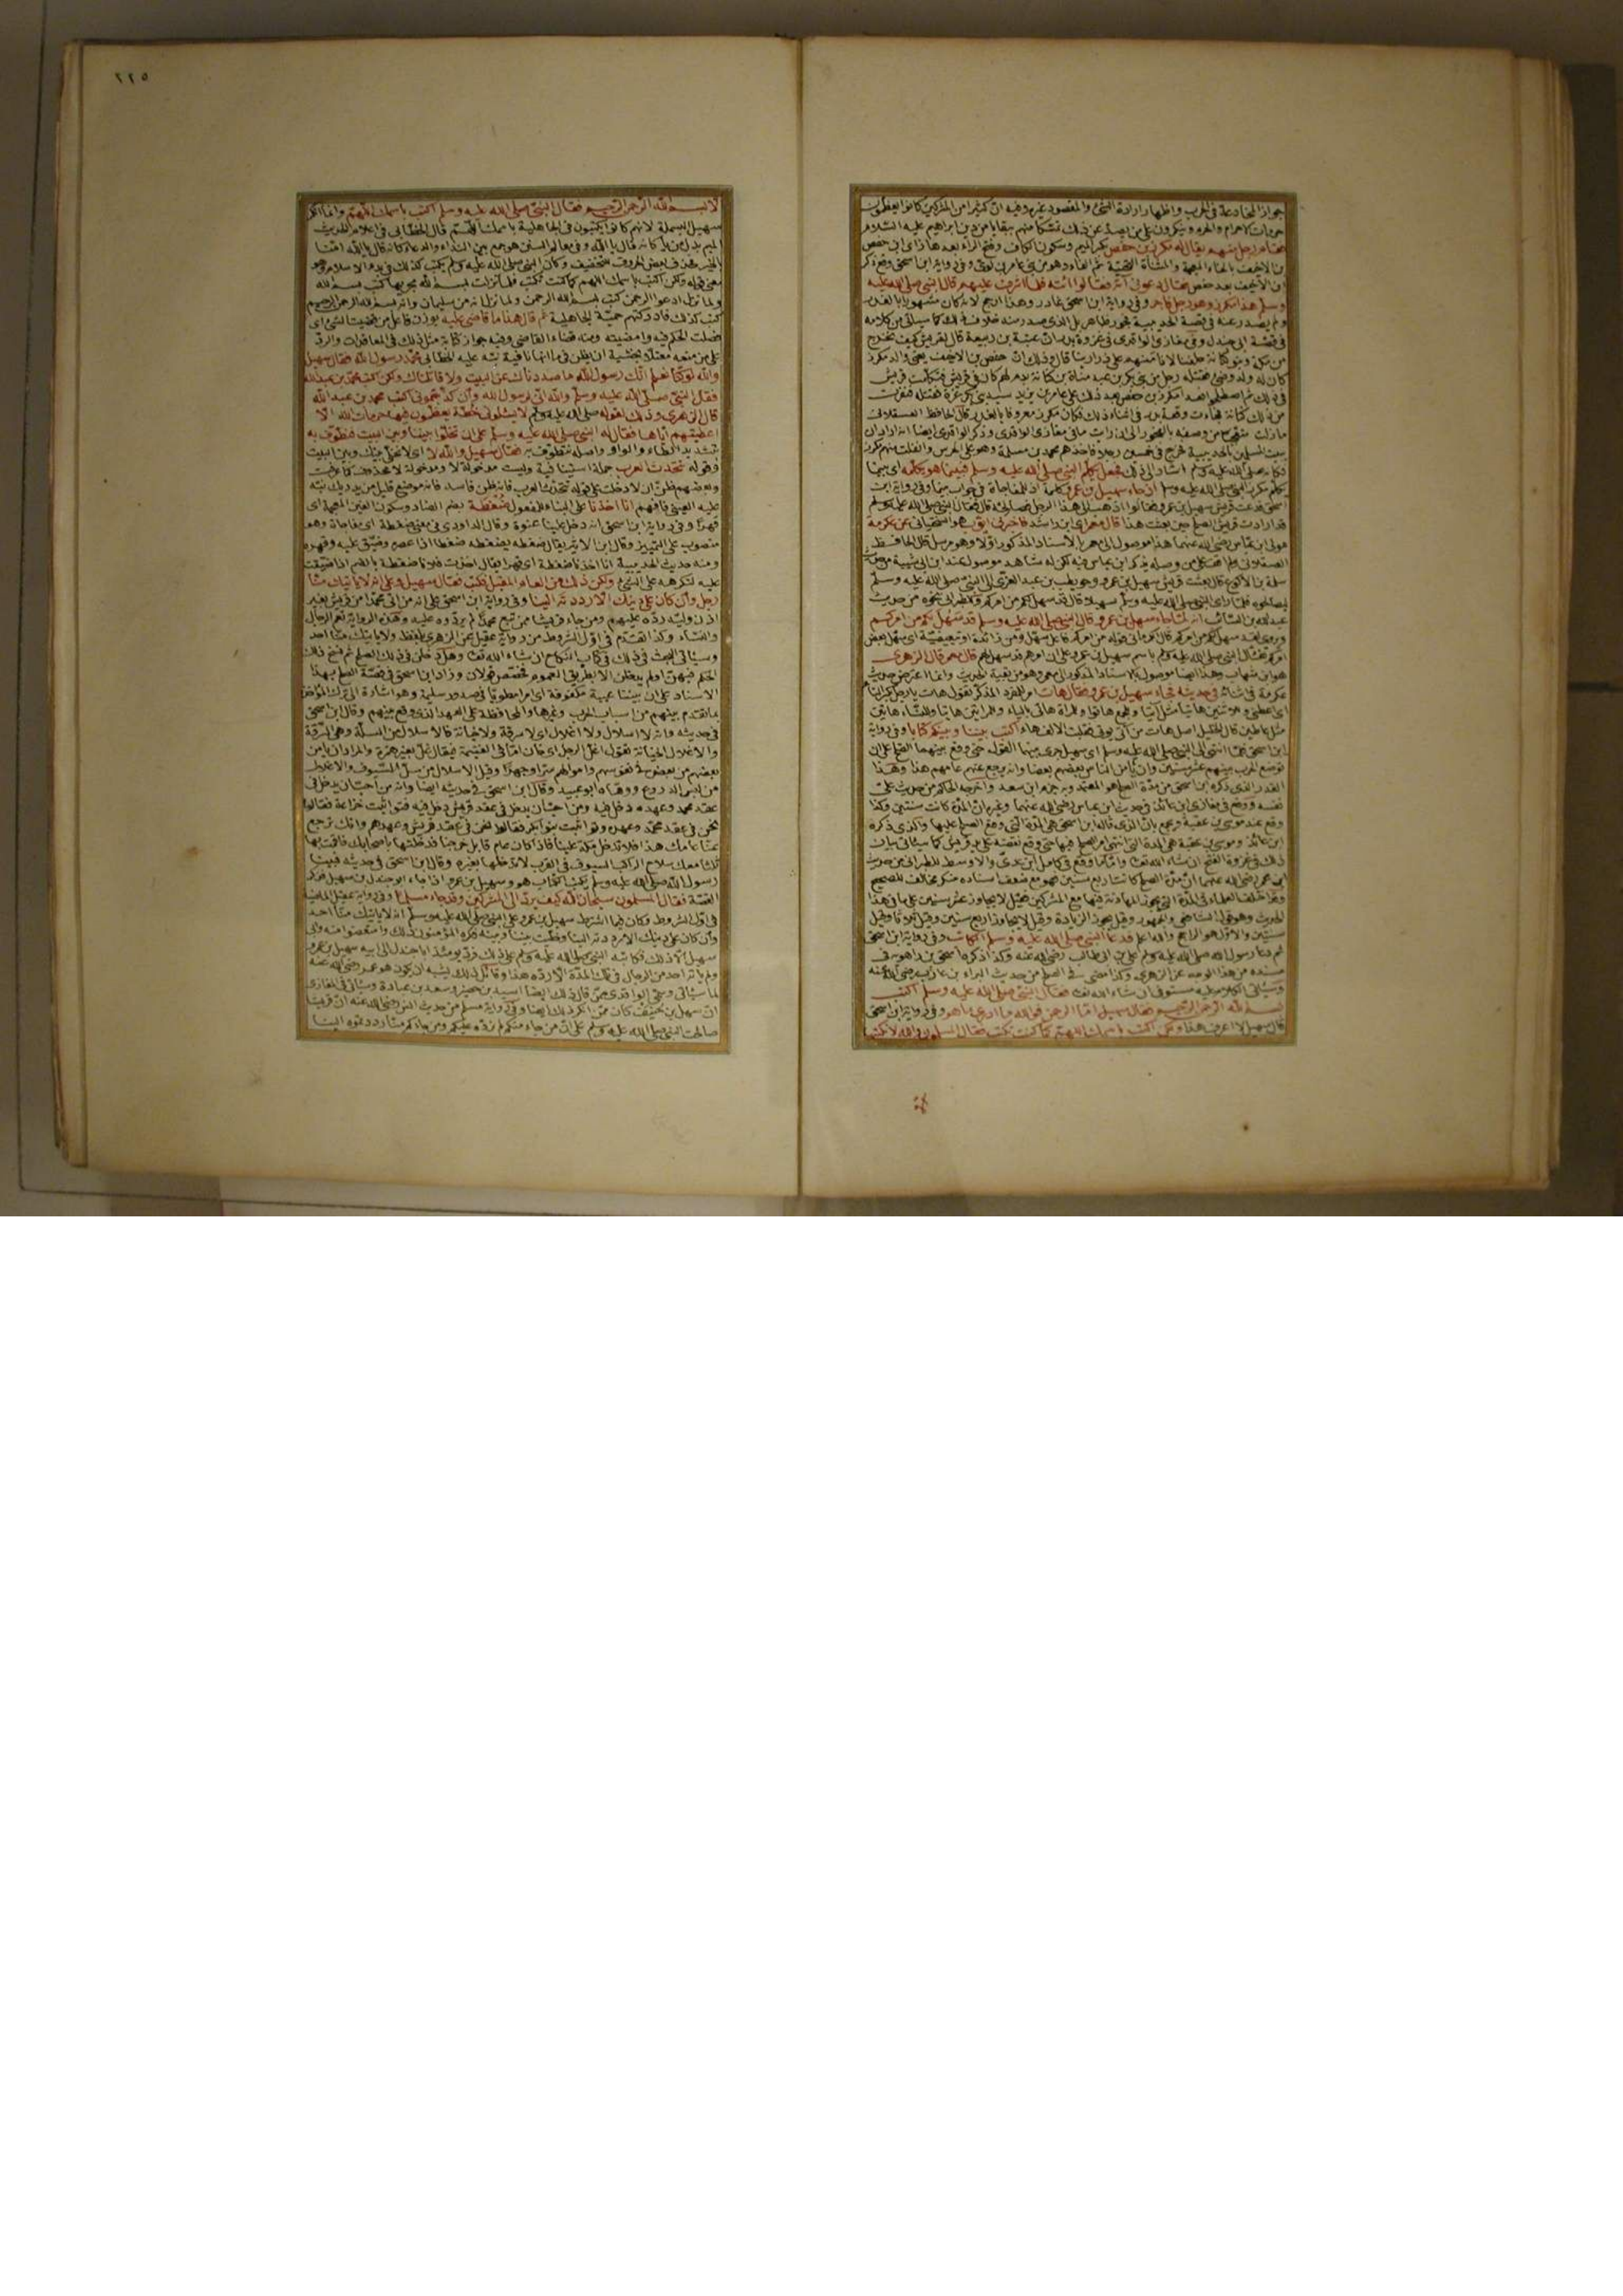 جواز المخادعة في الحرب واظهار ارادة الشئ والمقصود غيره وفيه ان كثيرا من المشركين كانوا يعظمون
حرمات الاحرام والحرم وينكرون على من يصد عن ذلك تمسكا منهم ببقايا من دين ابراهيم عليه السلام
فقام رجل منهم يقال له مكرز بن حفص بكسر الميم وسكون الكاف وفتح الراء بعدها زاى ابن حفص
بن الاخيف بالخاء المعجمة والمثناة التحتية ثم الفاء وهو من بنى عامر بن لؤى وفى رواية ابن اسحق
ابن الاخيف بعد حفص فقال دعونى آته فقالوا ائته فلما اشرف عليهم قال النبى صلى الله عليه
وسلم هذا مكرز وهو رجل فاجر وفى رواية ابن اسحق غادر وهذا ارجح لانه كان مشهورا بالغدر
ولم يصدر عنه فى قصة الحديبية فجور ظاهر بل الذى صدر منه خلاف ذلك كما سيأتى من كلامه
فى قصة ابى جندل وفى مغازى الواقدى فى غزوة بدر ان عتبة بن ربيعة قال لقريش كيف نخرج
من مكة وبنو كنانة خلفنا لا نأمنهم على ذرارينا قال وذلك ان حفص بن الاخيف يعنى والد مكرز
كان له ولد وضئ فقتله رجل من بنى بكر بن عبد مناة بن كنانة بدم لهم كان فى قريش فتكلمت قريش
فى ذلك ثم اصطلحوا فعدا مكرز بن حفص بعد ذلك على عامر بن يزيد سيد بنى بكر غرة فقتله فنفرت
من ذلك كنانة فجاءت وقعة بدر فى اثناء ذلك فكان مكرز معروفا بالغدر قال الحافظ العسقلانى
ما زلت متعجبا من وصفه بالفجور الى ان رأيت ما فى مغازى الواقدى وذكر الواقدى ايضا انه اراد ان
يبيت المسلمين بالحديبية فخرج فى خمسين رجلا فاخذهم محمد بن مسلمة وهو على الحرس وانفلت منهم مكرز
فكأنه صلى الله عليه وسلم اشار الى ذلك فجعل يكلم النبى صلى الله عليه وسلم فبينما هو يكلمه اى بينما
يكلم مكرز النبى صلى الله عليه وسلم اذ جاء سهيل بن عمرو كلمة اذ للمفاجأة فى جواب بينما وفى رواية ابن
اسحق فدعت قريش سهيل بن عمرو فقالوا اذهب الى هذا الرجل فصالحه قال فقال النبى صلى الله عليه وسلم
قد ارادت قريش الصلح حين بعثت هذا قال معمر اى ابن راشد فاخبرنى ايوب هو السختيانى عن عكرمة
مولى ابن عباس رضى الله عنهما هذا موصول الى معمر بالاسناد المذكور اولا وهو مرسل قال الحافظ
العسقلانى ولم اقف على من وصله بذكر ابن عباس فيه لكن له شاهد موصول عند ابن ابى شيبة من حديث
سلمة بن الاكوع قال بعثت قريش سهيل بن عمرو وحويطب بن عبد العزى الى النبى صلى الله عليه وسلم
ليصالحوه فلما رأى النبى صلى الله عليه وسلم سهيلا قال قد سهل لكم من امركم وللطبرانى نحوه من حديث
عبد الله بن السائب انه لما جاء سهيل بن عمرو قال النبى صلى الله عليه وسلم قد سهل لكم من امركم
هو ابن شهاب وهذا ايضا موصول بالاسناد المذكور الى معمر وهو من بقية الحديث وانما اعترض حديث
عكرمة فى اثنائه فى حديثه فجاء سهيل بن عمرو فقال هات
اكتب بيننا وبينكم كتابا وفى رواية
ابن اسحق فلما انتهى الى النبى صلى الله عليه وسلم اى سهيل جرى بينهما القول حتى وقع بينهما الصلح على ان
توضع الحرب بينهم عشر سنين وان يأمن الناس بعضهم بعضا وانه يرجع عنهم عامهم هذا وهذا
القدر الذى ذكره ابن اسحق من مدة الصلح هو المعتمد وبه جزم ابن سعد واخرجه الحاكم من حديث على
نفسه ووقع فى مغازى ابن عائذ فى حديث ابن عباس رضى الله عنهما وغيره ان المدة كانت سنتين وكذا
وقع عند موسى بن عقبة ويجمع بان الذى قاله ابن اسحق هى المدة التى وقع الصلح عليها والذى ذكره
ابن عائذ وموسى بن عقبة هى المدة التى انتهى امر الصلح فيها حتى وقع نقضه على يد قريش كما سيأتى بيان
ذلك فى غزوة الفتح ان شاء الله تعالى واما ما وقع فى كامل ابن عدى والاوسط للطبرانى من حديث
ابن عمر رضى الله عنهما ان مدة الصلح كانت اربع سنين فهو مع ضعف اسناده منكر مخالف للصحيح
وقد اختلف العلماء فى المدة التى يجوز المهادنة فيها مع المشركين فقيل لا يجاوز عشر سنين على ما فى هذا
الحديث وهو قول الشافعى والجمهور وقيل يجوز الزيادة وقيل لا يجاوز اربع سنين وقيل ثلاثا وقيل
سنتين والاول هو الراجح والله اعلم فدعا النبى صلى الله عليه وسلم الكاتب وفى رواية ابن اسحق
ثم دعا رسول الله صلى الله عليه وسلم على بن ابى طالب رضى الله عنه وكذا ذكره اسحق بن راهويه فى
مسنده من هذا الوجه عن الزهرى وكذا مضى فى الصلح من حديث البراء بن عازب رضى الله عنه
وسيأتى الكلام عليه مستوفى ان شاء الله تعالى فقال النبى صلى الله عليه وسلم اكتب
بسم الله الرحمن الرحيم فقال سهيل اما الرحمن فوالله ما ادرى ما هو وفى رواية ابن اسحق
قال سهيل لا اعرف هذا ولكن اكتب باسمك اللهم كما كنت تكتب فقال المسلمون والله لا نكتبها
٢٢٥
الا بسم الله الرحمن الرحيم فقال النبى صلى الله عليه وسلم اكتب باسمك اللهم وانما انكر
سهيل البسملة لانهم كانوا يكتبون فى الجاهلية باسمك اللهم قال الخطابى فى اعلام الحديث
معنى قوله ولكن اكتب باسمك اللهم كما كنت تكتب
كتب كذلك فادركتهم حمية الجاهلية ثم قال هذا ما قاضى عليه بوزن فاعل من قضيت الشئ اى
فصلت الحكم فيه وامضيته ومنه قضاء القاضى وفيه جواز كتابة مثل ذلك فى المعاقدات والرد
على من منعه معتلا بخشية ان يظن فى ما انها نافية نبه عليه الخطابى محمد رسول الله فقال سهيل
والله لو كنا نعلم انك رسول الله ما صددناك عن البيت ولا قاتلناك ولكن اكتب محمد بن عبد الله
فقال النبى صلى الله عليه وسلم والله انى لرسول الله وان كذبتمونى اكتب محمد بن عبد الله
قال الزهرى وذلك لقوله صلى الله عليه وسلم لا يسئلونى خطة يعظمون فيها حرمات الله الا
اعطيتهم اياها فقال له النبى صلى الله عليه وسلم على ان تخلوا بيننا وبين البيت فنطوف به
بتشديد الطاء والواو واصله نتطوف به فقال سهيل والله لا اى لا نخلى بينك وبين البيت
وقوله تتحدث العرب جملة استئنافية وليست مدخولة لا ومدخولة لا محذوفة كما عرفت
عليه العينى فافهم انا اخذنا على البناء للمفعول ضغطة بضم الضاد وسكون الغين المعجمة اى
قهرا وفى رواية ابن اسحق انه دخل علينا عنوة وقال الداودى فى معنى ضغطة اى مفاجأة وهو
منصوب على التمييز وقال ابن الاثير يقال ضغطه يضغطه ضغطا اذا عصره وضيق عليه وقهره
ومنه حديث الحديبية انا اخذنا ضغطة اى قهرا يقال اخذت فلانا ضغطة بالضم اذا ضيقت
عليه لتكرهه على الشئ ولكن ذلك من العام المقبل فكتب فقال سهيل وعلى انه لا يأتيك منا
رجل وان كان على دينك الا رددته الينا وفى رواية ابن اسحق على انه من اتى محمدا من قريش بغير
اذن وليه رده عليهم ومن جاء قريشا ممن تبع محمدا لم يردوه عليه وهذه الرواية تعم الرجال
والنساء وكذا تقدم فى اول الشروط من رواية عقيل عن الزهرى بلفظ ولا يأتيك منا احد
وسيأتى البحث فى ذلك فى كتاب النكاح ان شاء الله تعالى وهل دخلن فى ذلك الصلح ثم نسخ ذلك
الحكم فيهن او لم يدخلن الا بطريق العموم فخصص قولان وزاد ابن اسحق فى قصة الصلح بهذا
الاسناد على ان بيننا عيبة مكفوفة اى امرا مطويا فى صدور سليمة وهو اشارة الى ترك المؤاخذة
بما تقدم بينهم من اسباب الحرب وغيرها والمحافظة على العهد الذى وقع بينهم وقال ابن اسحق
فى حديثه وانه لا اسلال ولا اغلال اى لا سرقة ولا خيانة فالاسلال من السلة وهى السرقة
والاغلال الخيانة تقول اغل الرجل اى خان اما فى الغنيمة فيقال غل بغير همزة والمراد ان يأمن
بعضهم من بعض فى نفوسهم واموالهم سرا وجهرا وقيل الاسلال من سل السيوف والاغلال
من لبس الدروع ووهاه ابو عبيد وقال ابن اسحق فى حديثه ايضا وانه من احب ان يدخل فى
عقد محمد وعهده دخل فيه ومن احب ان يدخل فى عقد قريش دخل فيه فتواثبت خزاعة فقالوا
نحن فى عقد محمد وعهده وتواثبت بنو بكر فقالوا نحن فى عقد قريش وعهدهم وانك ترجع
عنا عامك هذا فلا تدخل مكة علينا فاذا كان عام قابل خرجنا فدخلتها باصحابك فاقمت بها
ثلثا معك سلاح الراكب السيوف فى القرب لا تدخلها بغيره وقال ابن اسحق فى حديثه فبينا
رسول الله صلى الله عليه وسلم يكتب الكتاب هو وسهيل بن عمرو اذ جاء ابو جندل بن سهيل فذكر
القصة فقال المسلمون سبحان الله كيف يرد الى المشركين وقد جاء مسلما وفى رواية عقيل الماضية
فى اول الشروط وكان فيما اشترط سهيل بن عمرو على النبى صلى الله عليه وسلم انه لا يأتيك منا احد
وان كان على دينك الا رددته الينا وخليت بيننا وبينه فكره المؤمنون ذلك وامتعضوا منه وابى
سهيل الا ذلك فكاتبه النبى صلى الله عليه وسلم على ذلك فرد يومئذ ابا جندل الى ابيه سهيل بن عمرو
ولم يأته احد من الرجال فى تلك المدة الا رده هذا وقائل ذلك يشبه ان يكون هو عمر رضى الله عنه
لما سيأتى وسمى الواقدى ممن قال ذلك ايضا اسيد بن حضير وسعد بن عبادة وسيأتى فى المغازى
ان سهل بن حنيف كان ممن انكر ذلك ايضا وفى رواية مسلم من حديث انس رضى الله عنه ان قريشا
صالحت النبى صلى الله عليه وسلم على ان من جاء منكم لم نرده عليكم ومن جاءكم منا رددتموه الينا